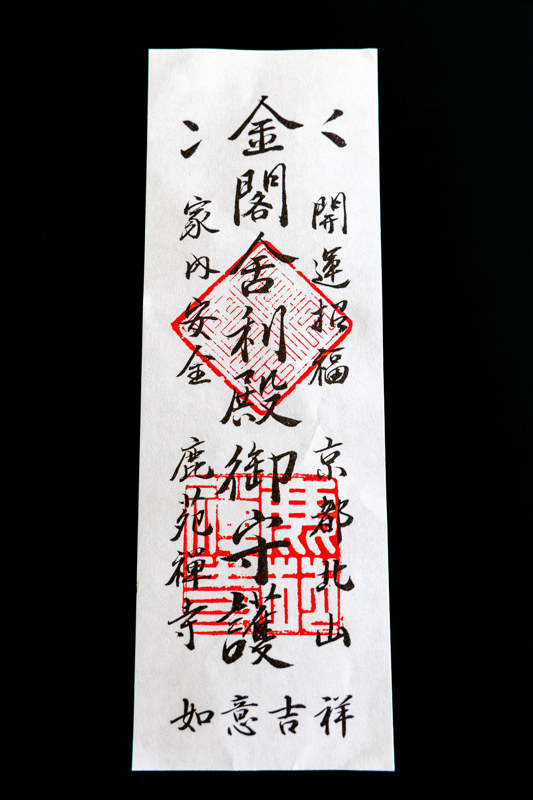 開運招福 京都北山
金閣舎利殿御守護
家内安全 鹿苑禪寺
如意吉祥